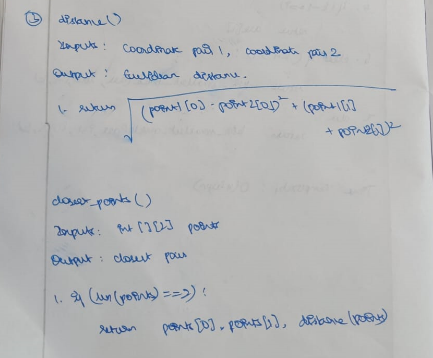 ① distance()
Inputs: coordinate pair 1, coordinate pair 2
Output: Euclidean distance.
1. return √(point1[0] - point2[0])² + (point1[1]
+ point2[1])²
closest_points()
Inputs: int [][2] points
Output: closest pair
1. if (len(points) == 2):
return points[0], points[1], distance(points)